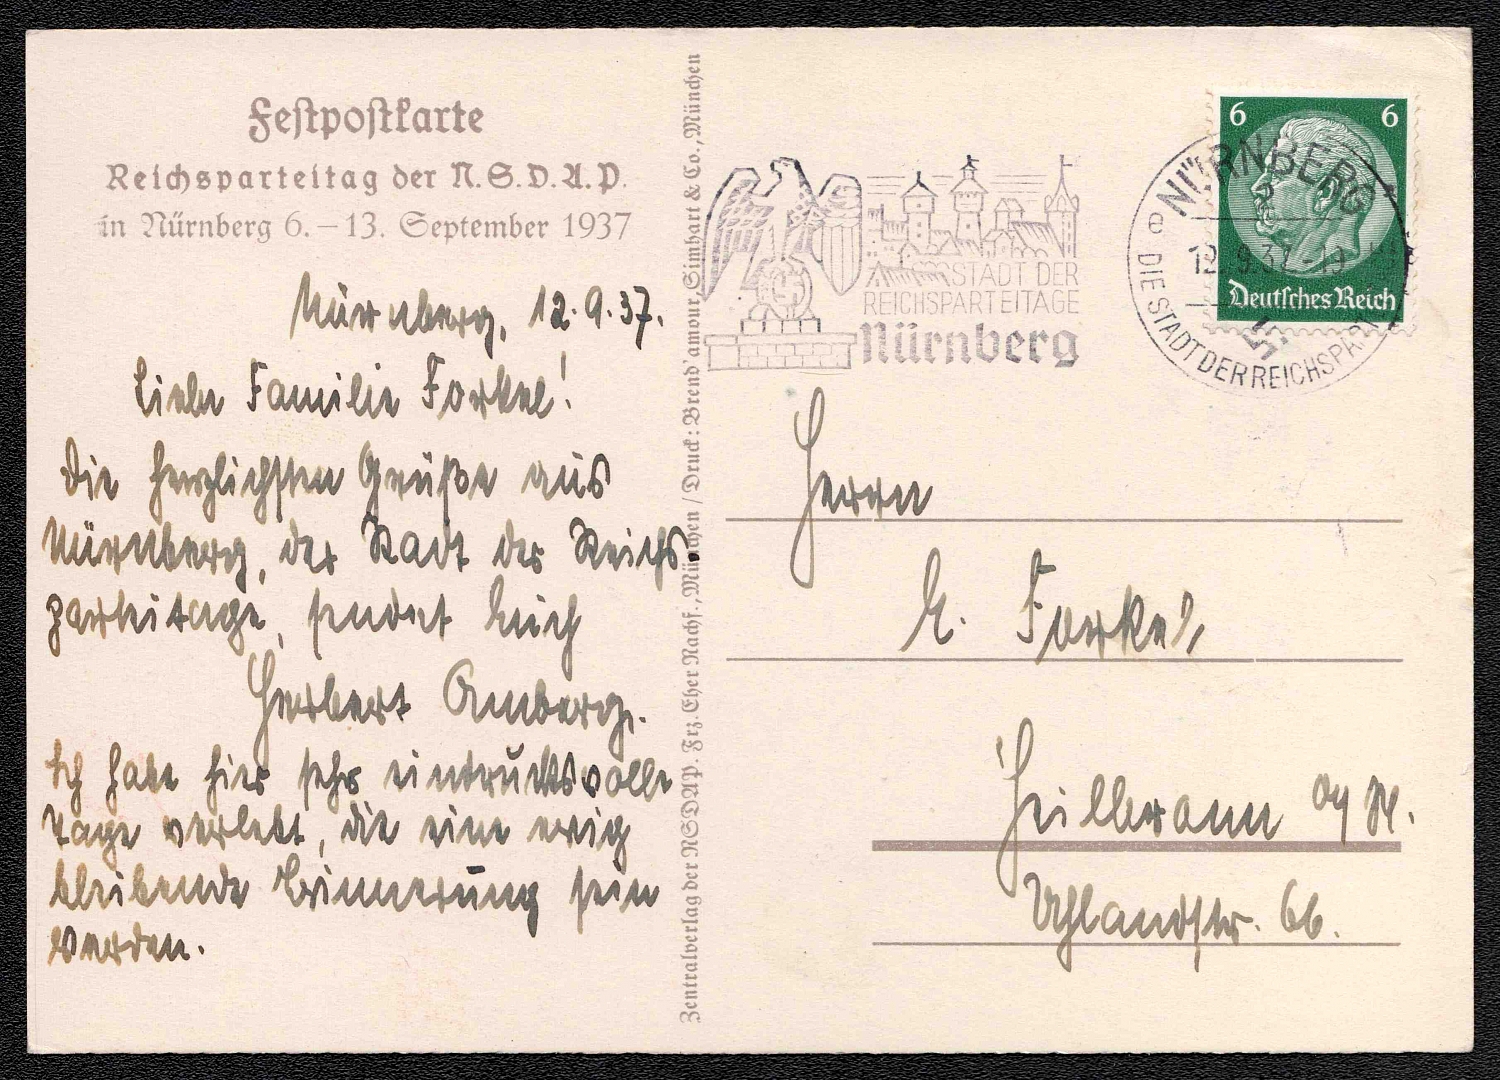 Festpostkarte
Reichsparteitag der N.S.D.A.P.
in Nürnberg 6.–13. September 1937
Nürnberg, 12.9.37.
Liebe Familie Forkel!
Die herzlichsten Grüße aus
Nürnberg, der Stadt der Reichs-
parteitage, sendet Euch
Herbert Amberg.
Ich habe hier sehr eindrucksvolle
Tage verlebt, die eine ewig
bleibende Erinnerung sein
werden.
Zentralverlag der NSDAP. Frz. Eher Nachf., München / Druck: Brend'amour, Simhart & Co., München
STADT DER
REICHSPARTEITAGE
Nürnberg
6 6
Deutsches Reich
NÜRNBERG
e
12.9.37.-19
DIE STADT DER REICHSPART
Herrn
E. Forkel,
Heilbronn a/N.
Uhlandstr. 66.